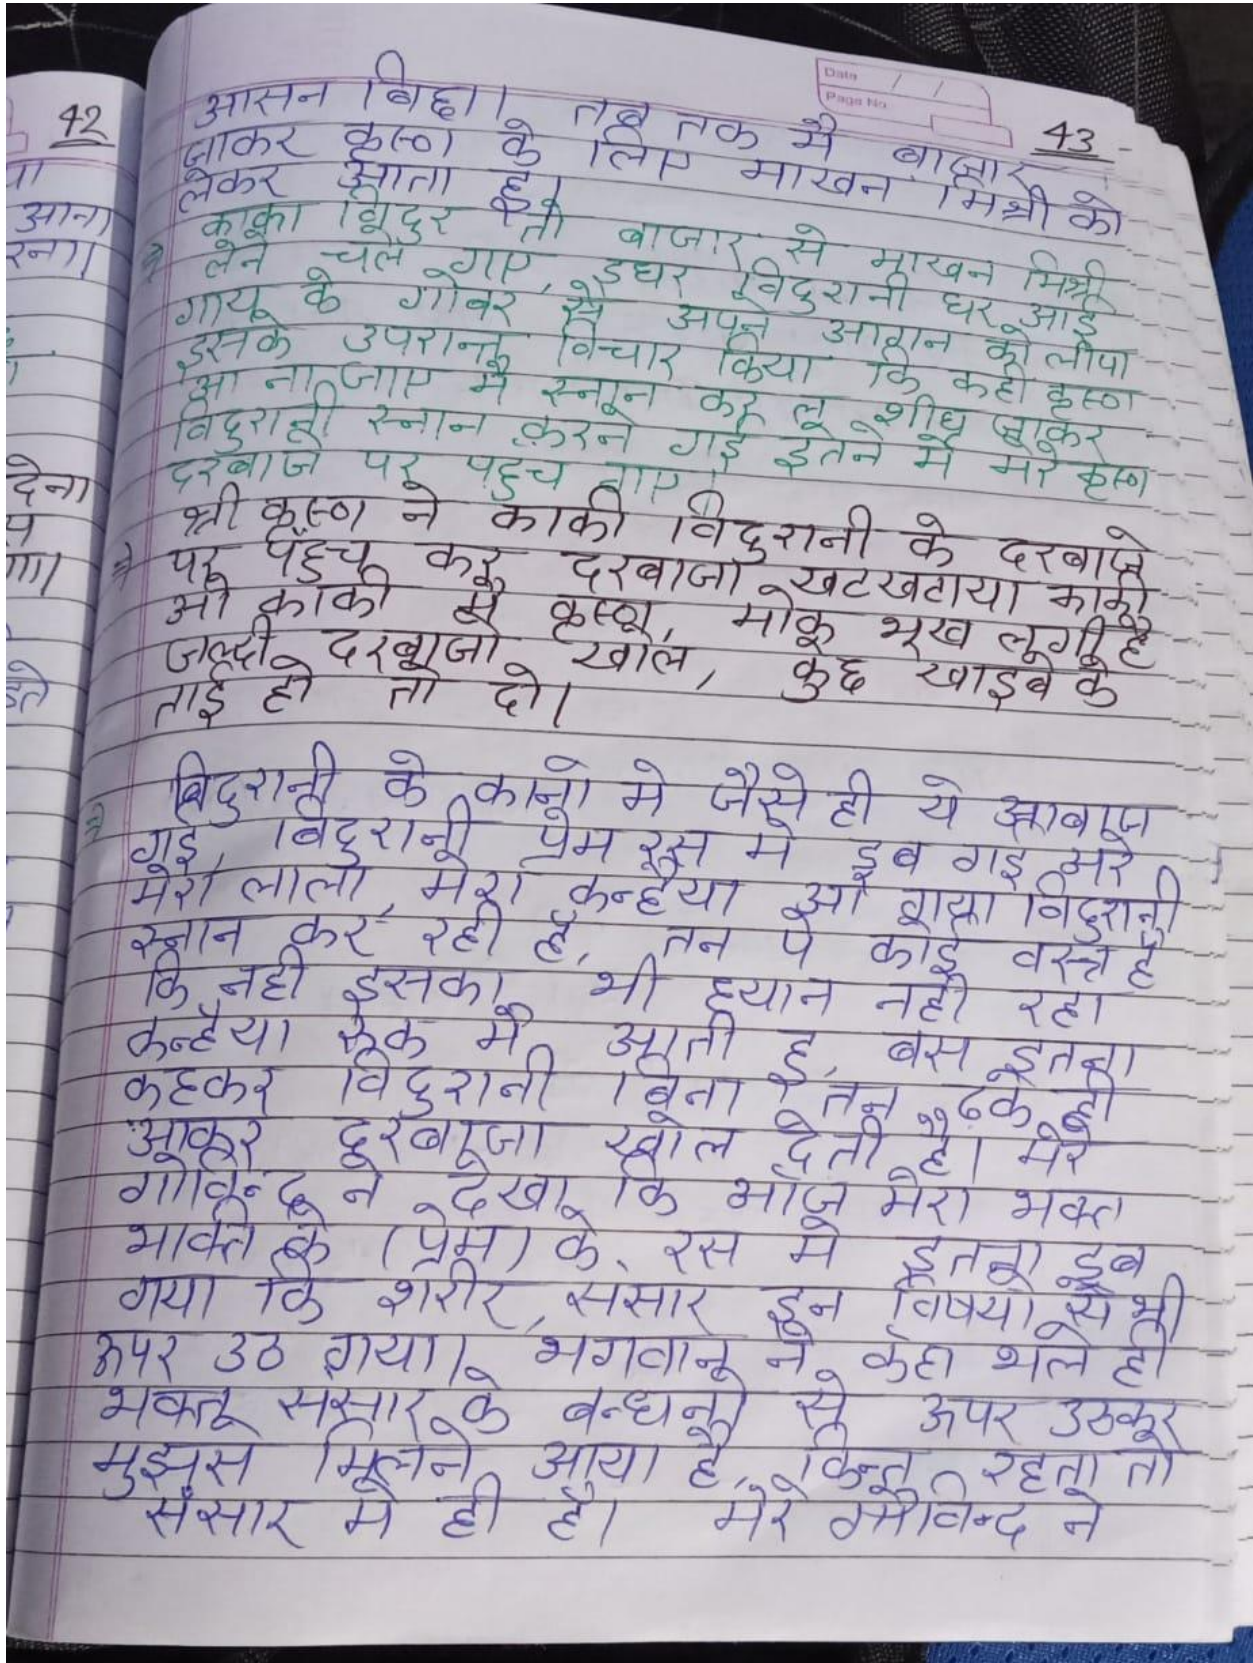 42
या
आना
रना।
देना
स
गा।
डते
Date / /
Page No
43
आसन बिछा। तब तक मै बाजार
जाकर कृस्ण के लिए माखन मिश्री को
लेकर आता हू।
काका विदुर तो बाजार से माखन मिश्री
लेने चले गए, इधर विदुरानी घर आई
गाय के गोबर से अपने आगन को लीपा
इसके उपरान्त विचार किया कि कही कृस्ण
आ ना जाए मै स्नान कर लू शीघ्र जाकर
विदुरानी स्नान करने गई इतने मे मेरे कृस्ण
दरबाजे पर पहुच गए।
श्री कृस्ण ने काकी विदुरानी के दरबाजे
⇒ पर पँहुच कर दरबाजा खटखटाया काकी
ओ काकी मै कृस्ण, मोकू भूख लगी है
जल्दी दरबाजो खोल, कुछ खाइबे के
ताई हो तो दो।
विदुरानी के कानो मे जैसे ही ये आबाज
⇒ गई, विदुरानी प्रेम रस मे डूब गई अरे
मेरा लाला, मेरा कन्हैया आ गया विदुरानी
स्नान कर रही है, तन पे कोई वस्त्र है
कि नही इसका भी ध्यान नही रहा
कन्हैया रूक मै आती हू, बस इतना
कहकर विदुरानी बिना तन ढके ही
आकर दरबाजा खोल देती है। मेरे
गोविन्द ने देखा कि आज मेरा भक्त
भक्ति के (प्रेम) के रस मे इतना डूब
गया कि शरीर, संसार इन विषयो से भी
ऊपर उठ गया। भगवान ने कहा भले ही
भक्त संसार के बन्धनो से ऊपर उठकर
मुझसे मिलने आया है, किन्तु रहता तो
संसार मे ही है। मेरे गोविन्द ने